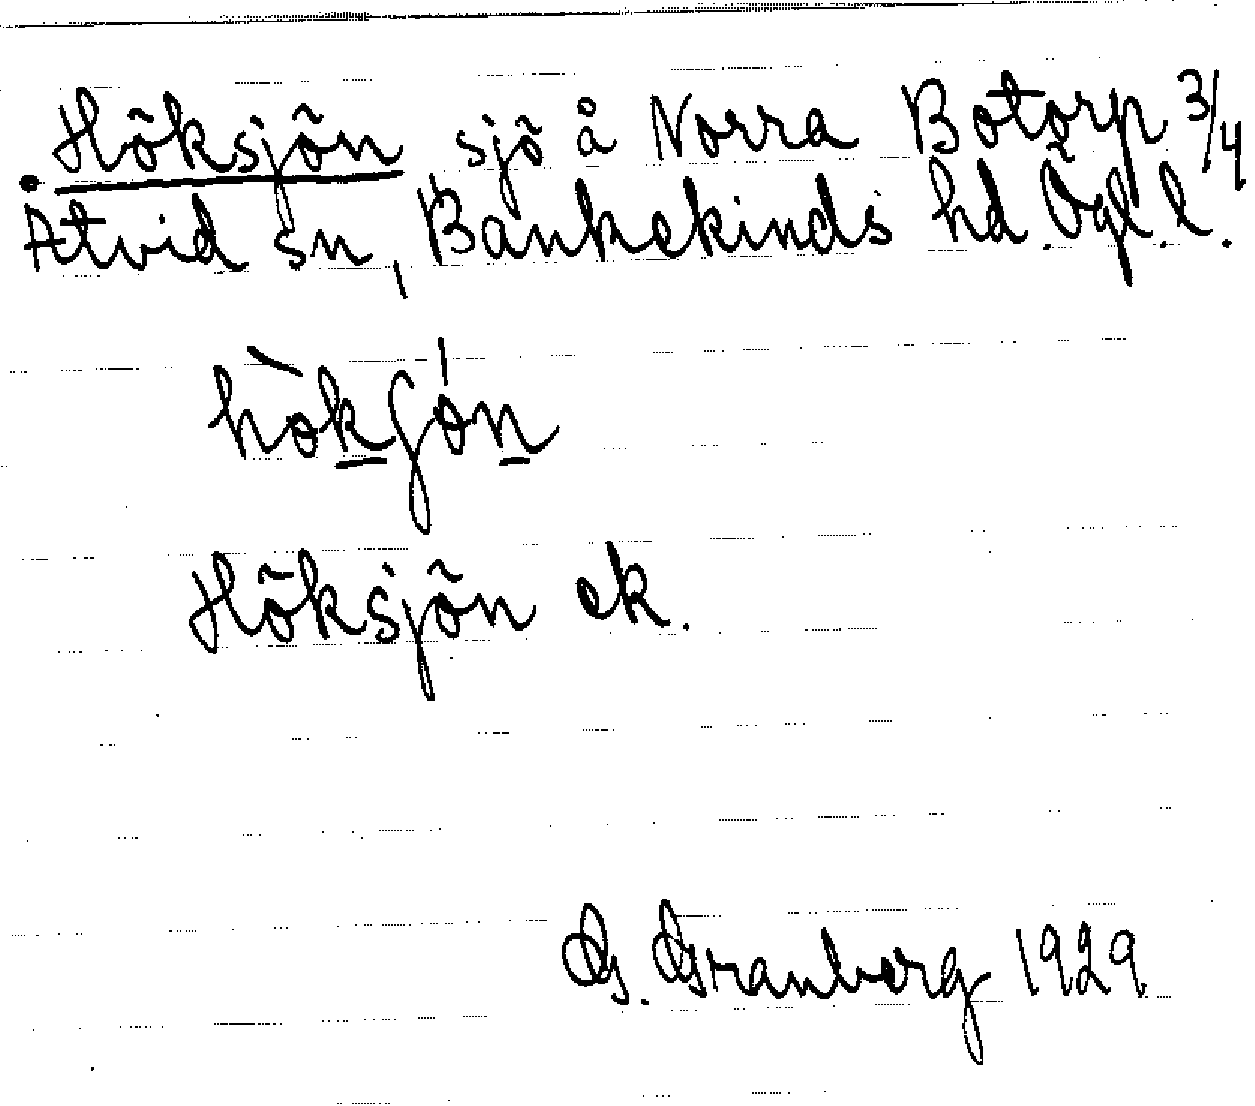 Höksjön sjö å Norra Botorp 3/4
Åtvid sn, Bankekinds hd. Ögl.l.
hò̀kʃón
Höksjön ek.
G. Granberg 1929